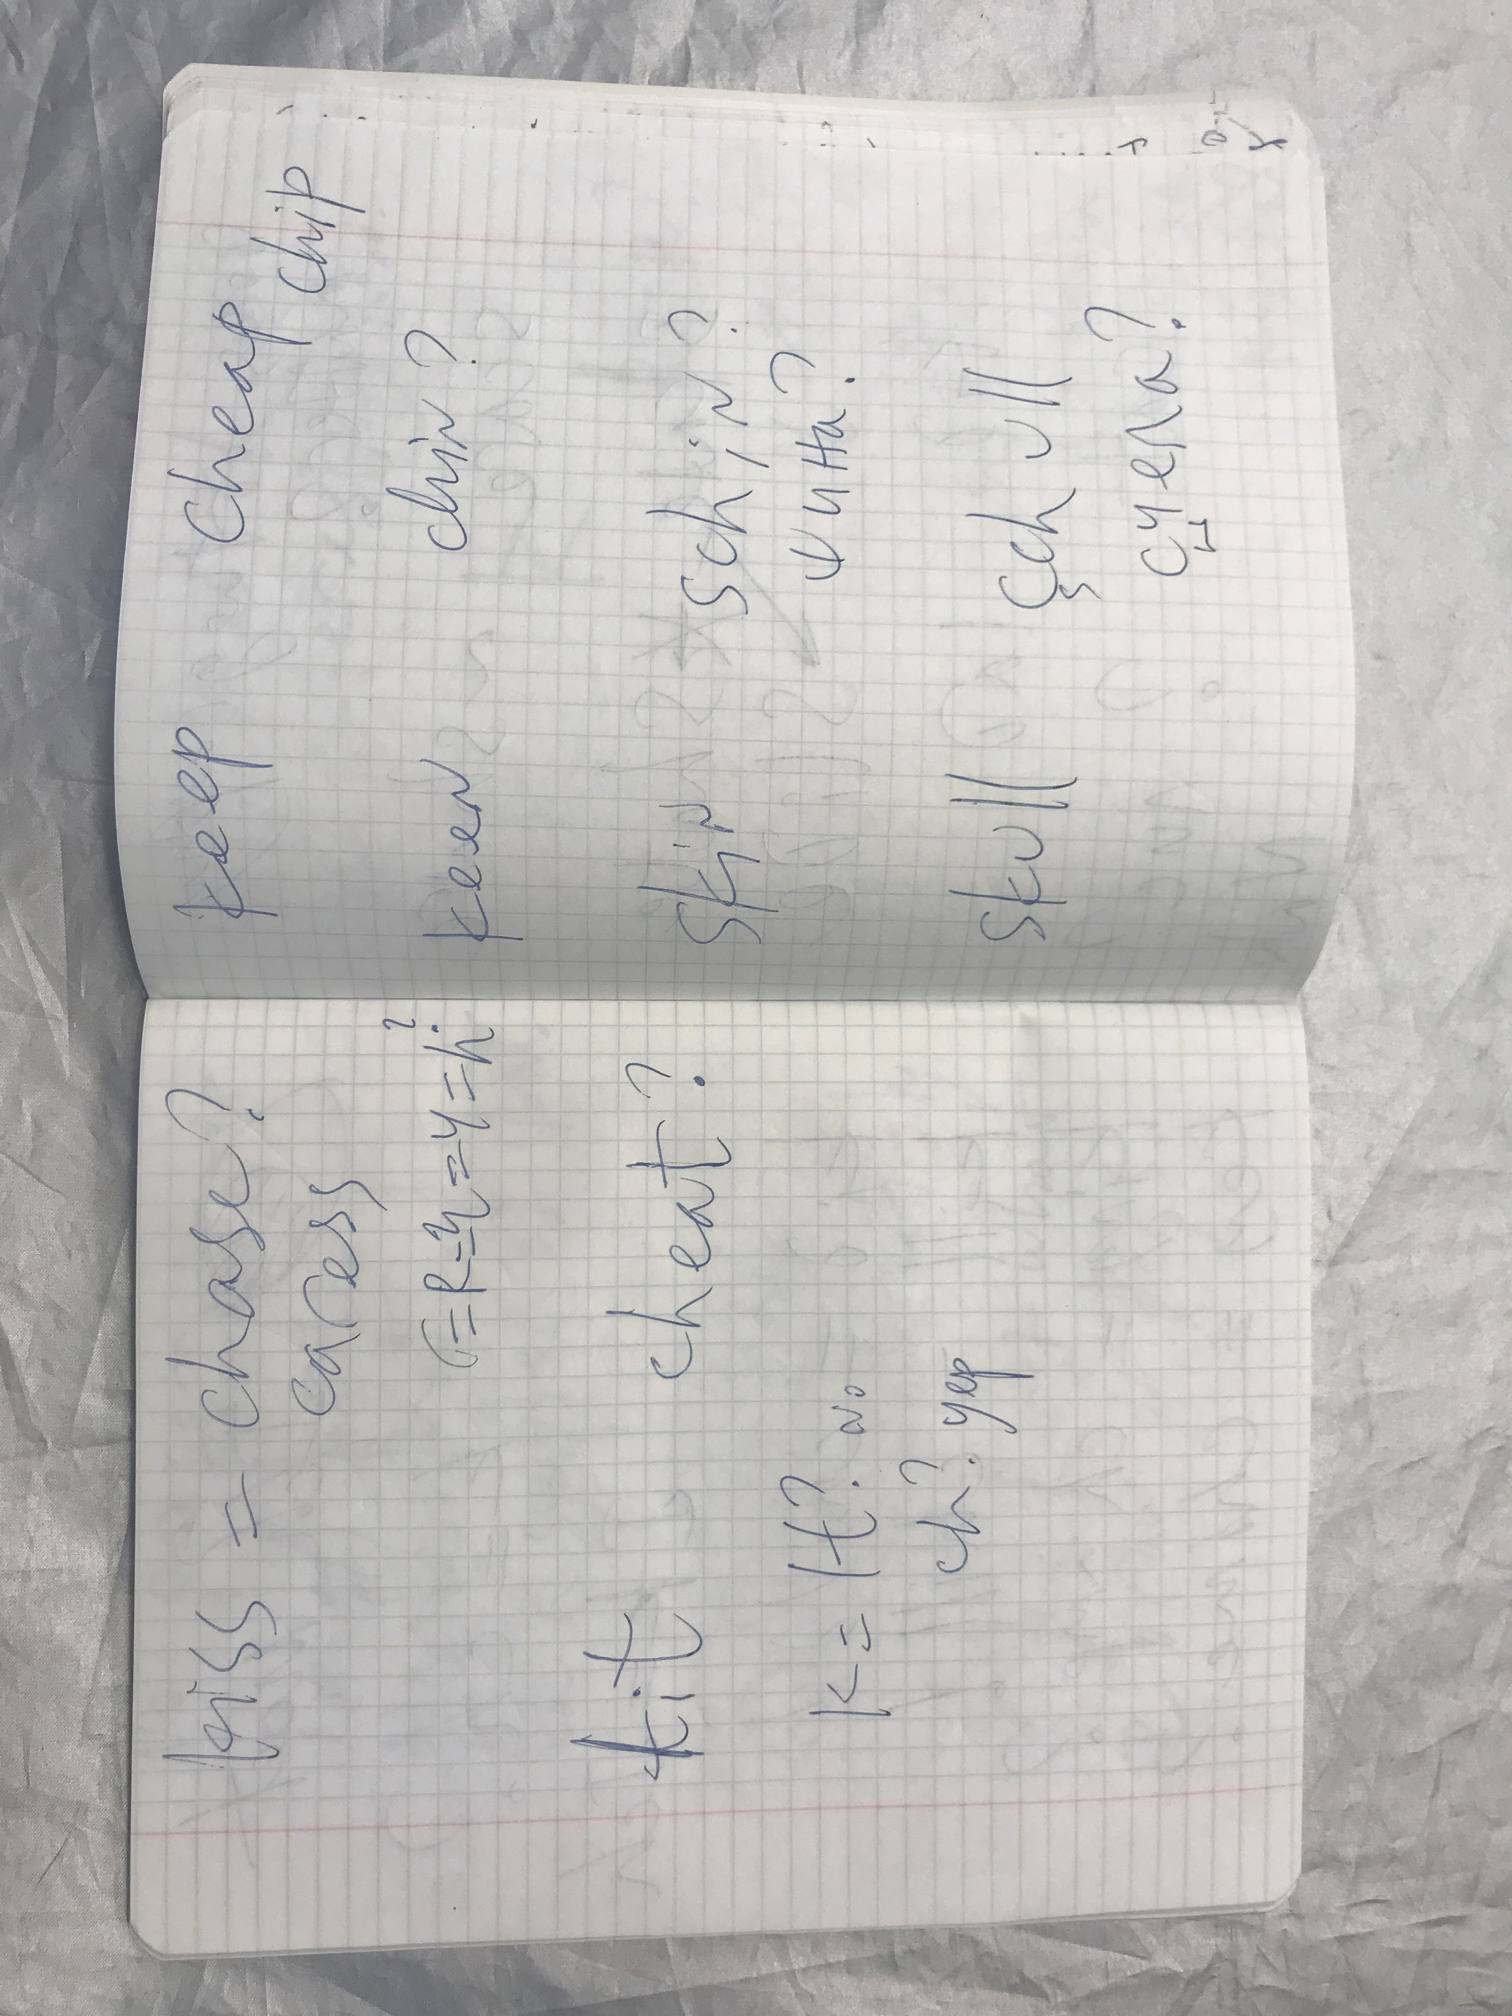 kiss = chase?
caress
r=R=Ч=Y=h?
kit cheat?
K = It? No
ch? yep
keep cheap
chip
keen chin?
skin schin?
кина?
skull schull
суела?